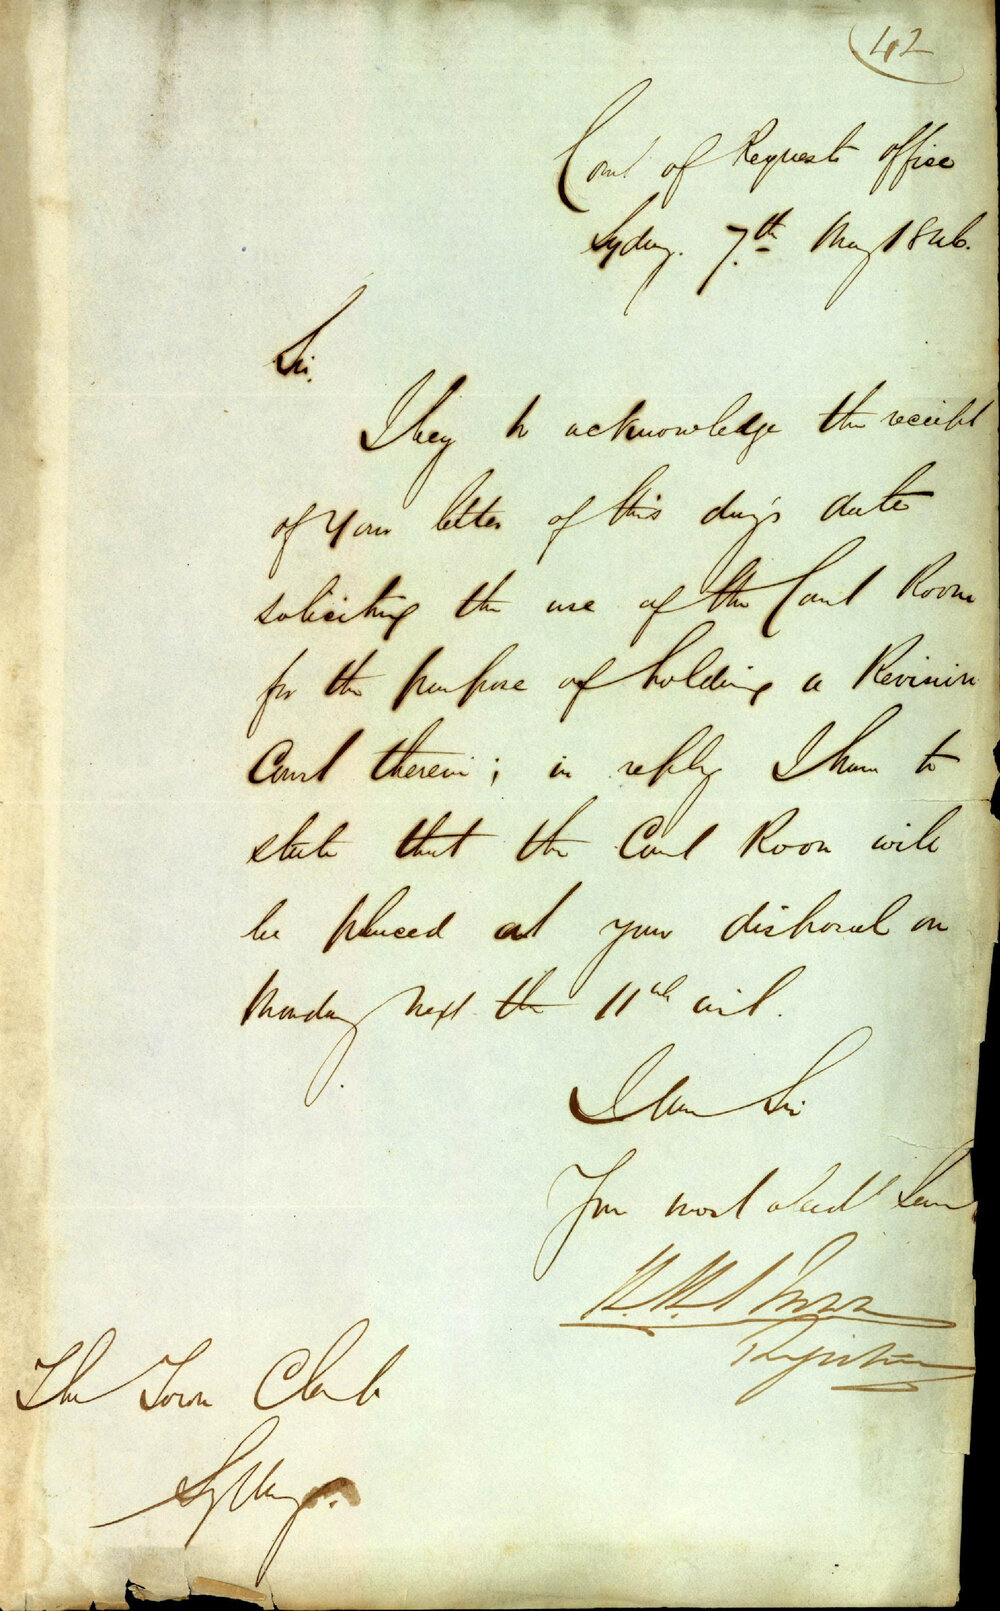 42
Court of Requests office
Sydney. 7th May 1846.
Sir,
I beg to acknowledge the receipt
of your letter of this day's date
soliciting the use of the Court Room
for the purpose of holding a Revision
Court therein; in reply I have to
state that the Court Room will
be placed at your disposal on
Monday next the 11th inst.
I have Sir
Your most obedt Serv
Registrar
The Town Clerk
Sydney.